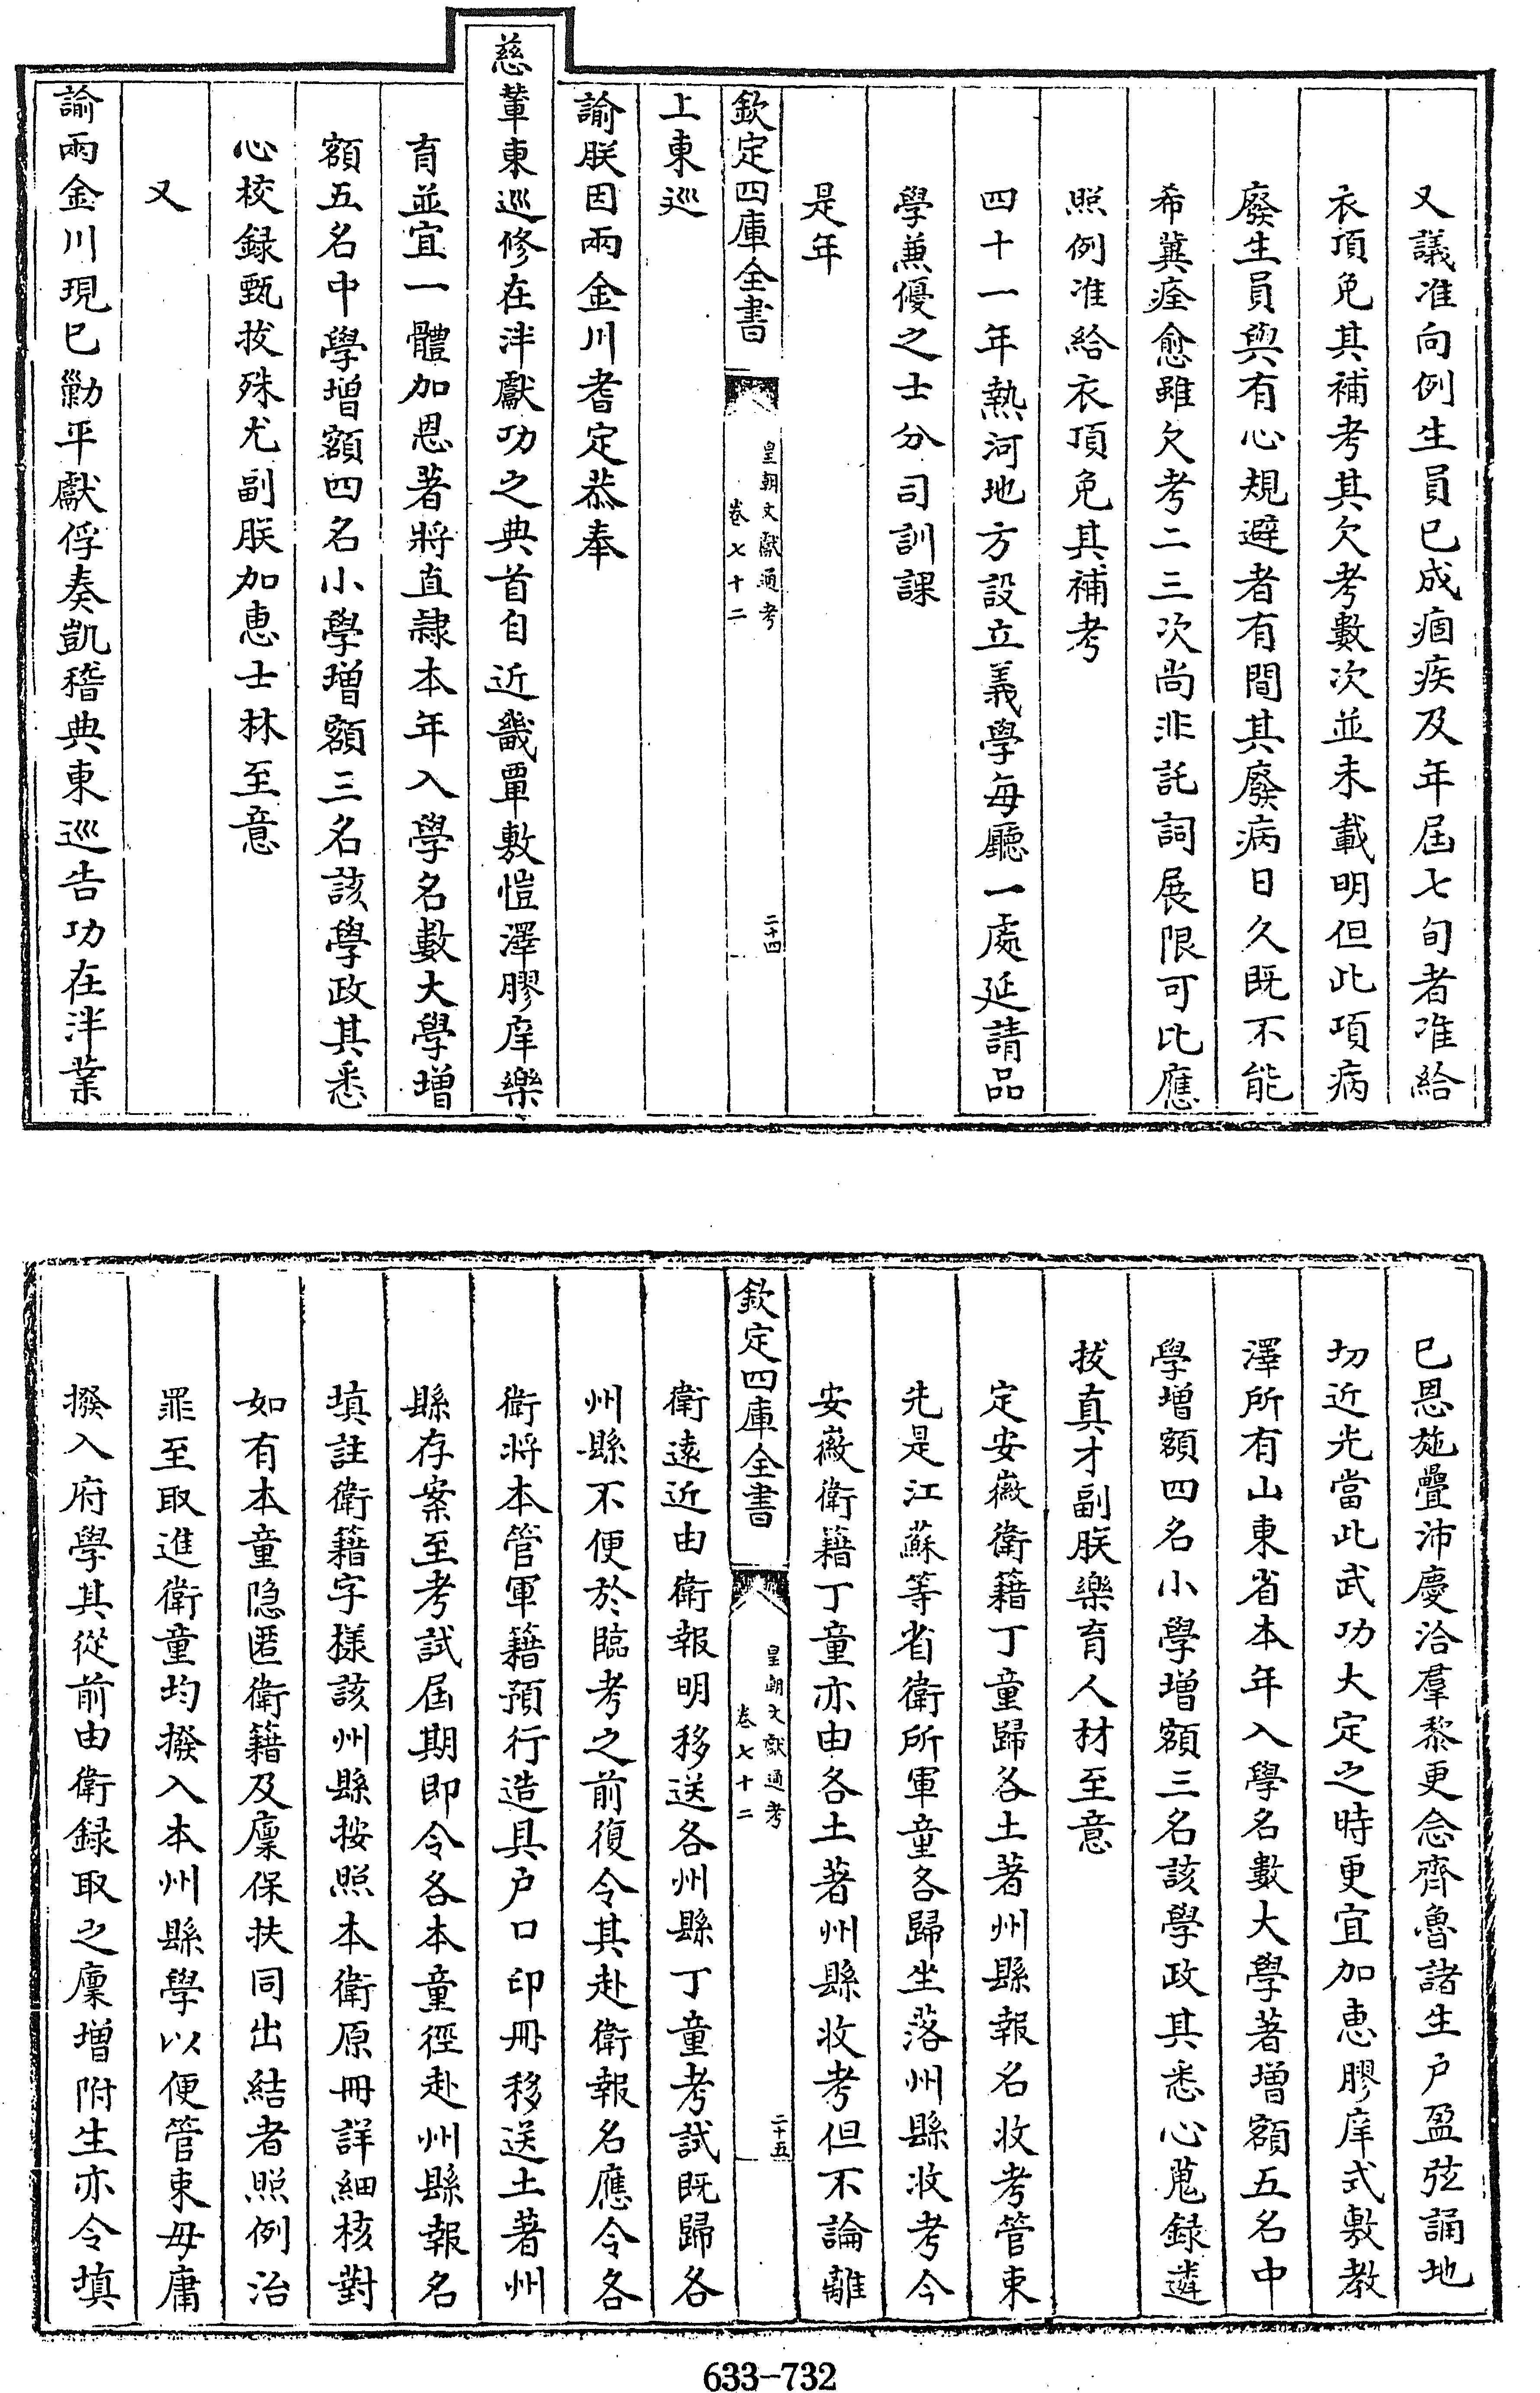 又議准向例生員已成痼疾及年届七旬者准給
衣頂免其補考其欠考數次並未載明但此項病
廢生員與有心規避者有間其廢病日久既不能
希冀痊愈雖欠考二三次尚非託詞展限可比應
照例准給衣頂免其補考
四十一年熱河地方設立義學每廳一處延請品
學兼優之士分司訓課
是年
欽定四庫全書
皇朝文獻通考
卷七十二
二十四
上東巡
諭朕因兩金川耆定恭奉
慈輦東巡修在泮獻功之典首自近畿覃敷愷澤膠庠樂
育並宜一體加恩著將直隸本年入學名數大學增
額五名中學增額四名小學增額三名該學政其悉
心校録甄拔殊尤副朕加惠士林至意
又
諭兩金川現已勦平獻俘奏凱稽典東巡告功在泮業
已恩施疊沛慶洽羣黎更念齊魯諸生户盈弦誦地
切近光當此武功大定之時更宜加惠膠庠式敷教
澤所有山東省本年入學名數大學著增額五名中
學增額四名小學增額三名該學政其悉心蒐録遴
拔真才副朕樂育人材至意
定安徽衛籍丁童歸各土著州縣報名收考管束
先是江蘇等省衛所軍童各歸坐落州縣收考今
安徽衛籍丁童亦由各土著州縣收考但不論離
欽定四庫全書
皇朝文獻通考
卷七十二
二十五
衛遠近由衛報明移送各州縣丁童考試既歸各
州縣不便於臨考之前復令其赴衛報名應令各
衛將本管軍籍預行造具户口印冊移送土著州
縣存案至考試屆期即令各本童徑赴州縣報名
填註衛籍字樣該州縣按照本衛原冊詳細核對
如有本童隐匿衛籍及廩保扶同出結者照例治
罪至取進衛童均撥入本州縣學以便管束毋庸
撥入府學其從前由衛録取之廩增附生亦令填
633-732